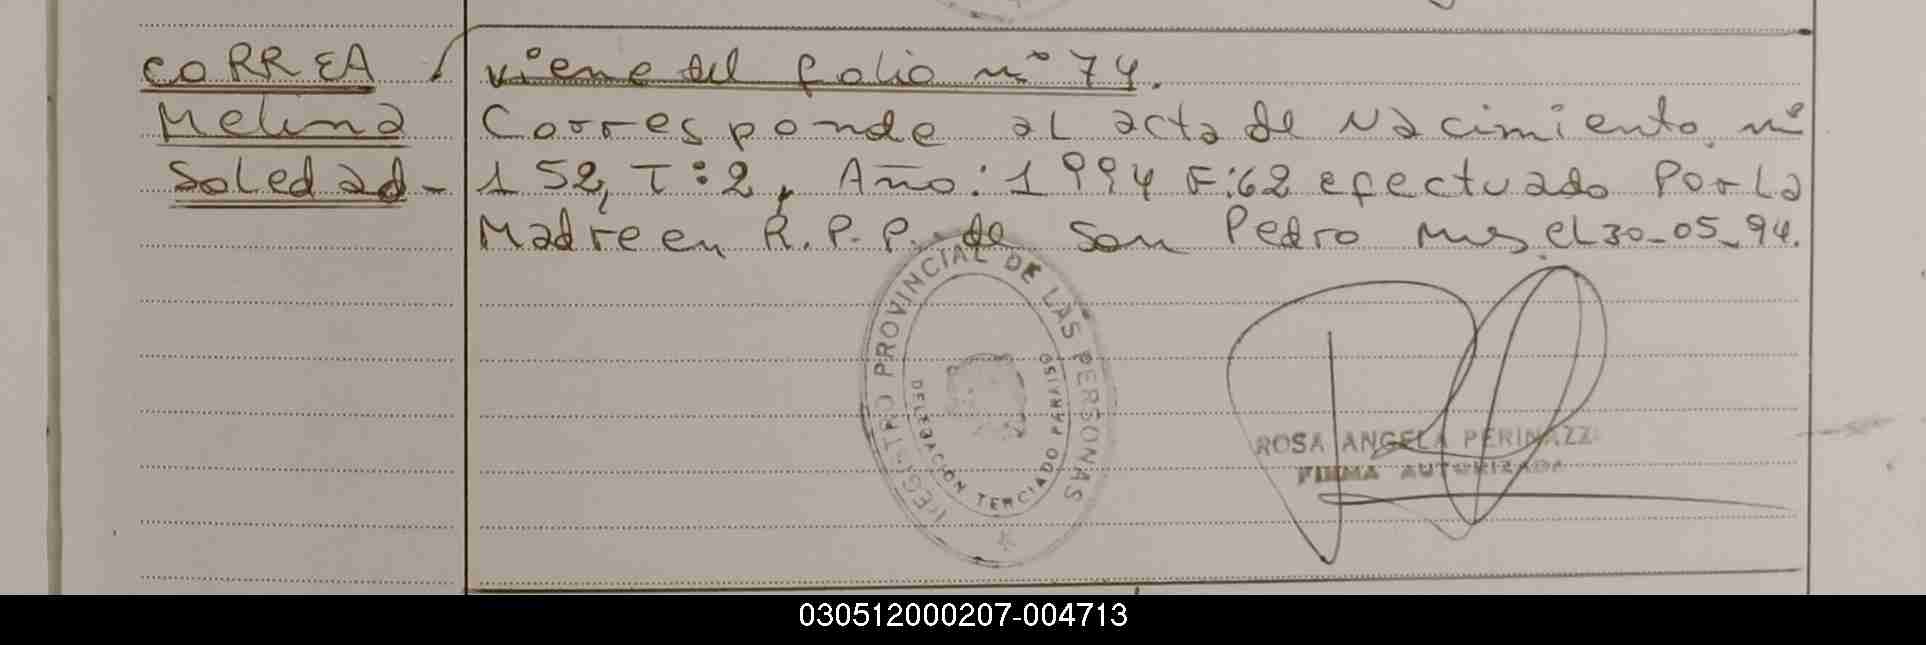 CORREA
Melina
Soledad-
viene del folio nº 74.
Corresponde al acta de Nacimiento nº
152, T:2, Año: 1994 F:62 efectuado Por La
Madre en R.P.P. de San Pedro Mns el 30-05-94.
REGISTRO PROVINCIAL DE LAS PERSONAS
DELEGACIÓN TERCIADO PARAISO
ROSA ANGELA PERINAZZI
FIRMA AUTORIZADA
030512000207-004713